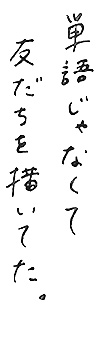 単語じゃなくて
友だちを描いてた。